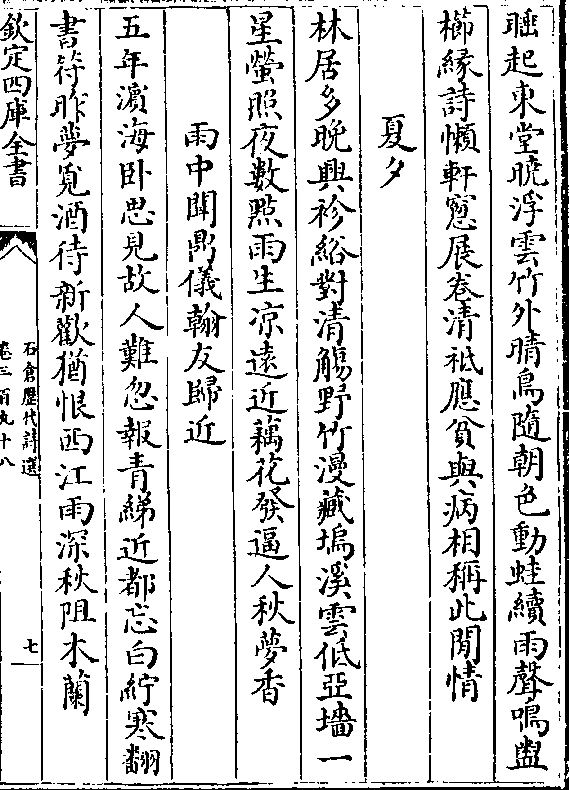 睡起東堂曉浮雲竹外晴鳥隨朝色動蛙續雨聲鳴盥
櫛緣詩懶軒窻展卷清祗應貧與病相稱此閒情
夏夕
林居多晚興袗綌對清觴野竹漫藏塢溪雲低亞墻一
星螢照夜數㸃雨生凉遠近藕花發逼人秋夢香
雨中聞鼎儀翰友歸近
五年濵海卧思見故人難忽報青綈近都忘白紵寒翻
書符昨夢覔酒待新歡猶恨西江雨深秋阻木蘭
欽定四庫全書
石倉歷代詩選
卷三百九十八
七